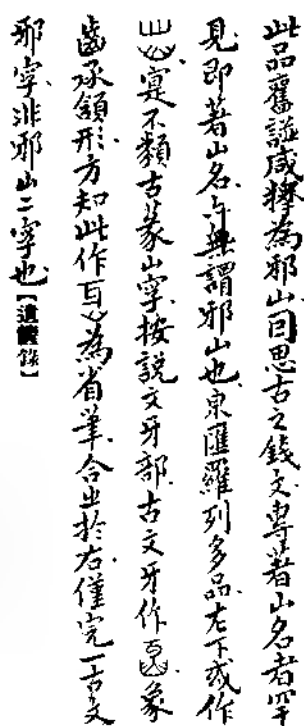 此品舊譜咸釋為邪山囙思古之錢文專著山名者罕
見即著山名亦無謂邪山也東匯羅列多品左下或作
寔不類古篆山字按說文牙部古文牙作象
齒承頷形方知此作為省筆合出於右僅完一古文
邪字非邪山二字也【遺篋錄】